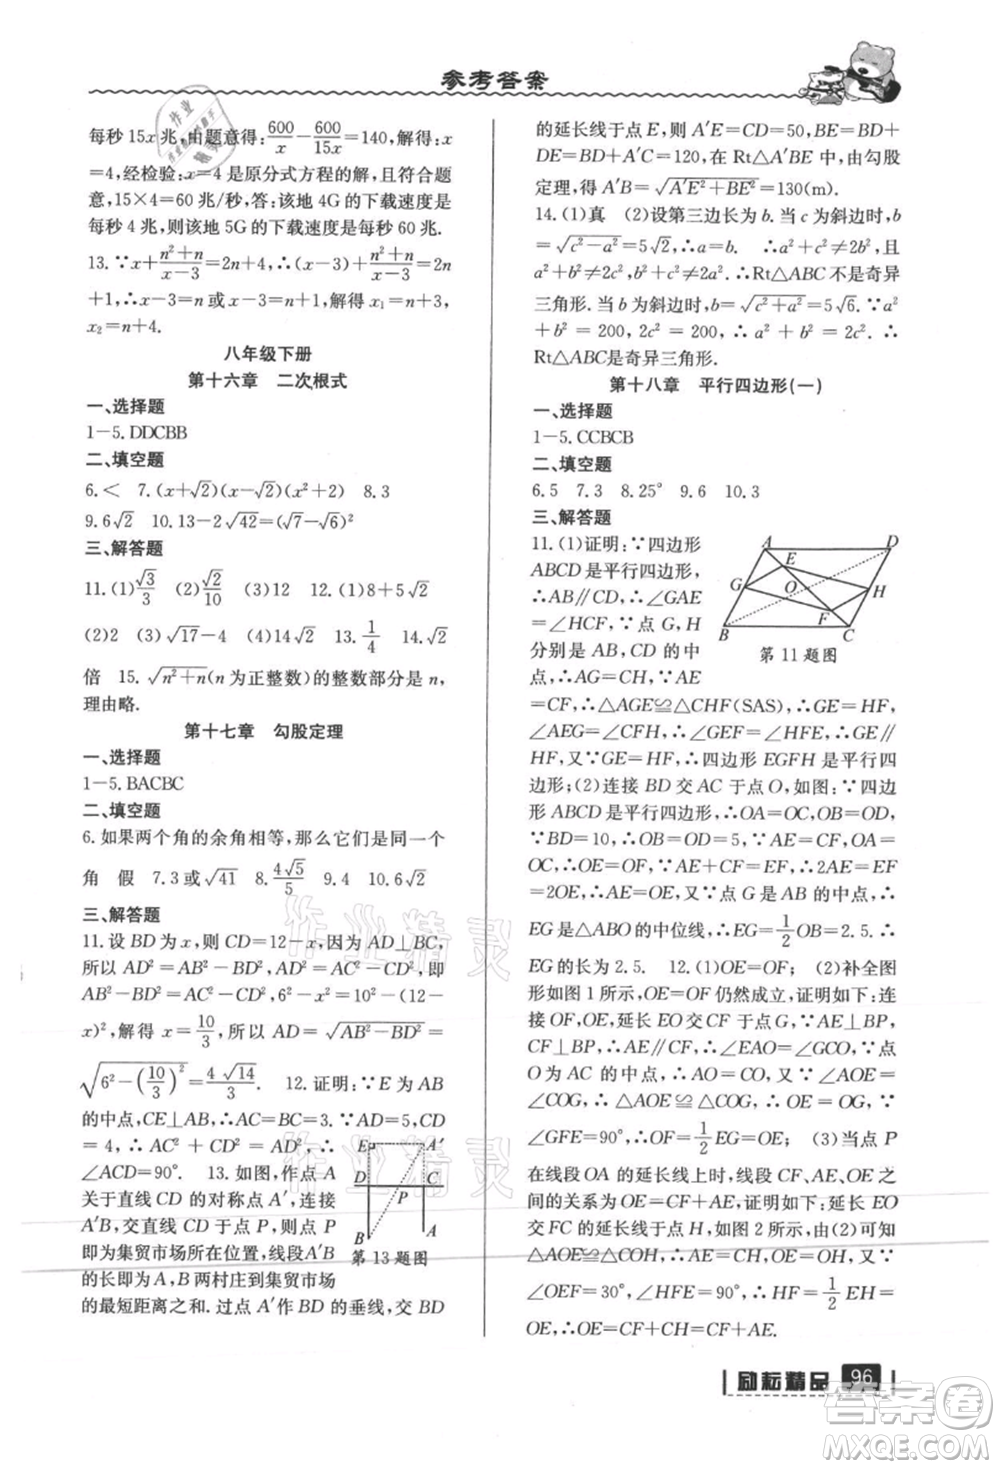 参考答案
每秒15x兆,由题意得:600/x－600/15x=140,解得:x
=4,经检验:x=4是原分式方程的解,且符合题
意,15×4=60兆/秒,答:该地4G的下载速度是
每秒4兆,则该地5G的下载速度是每秒60兆.
13.∵x+(n²+n)/(x－3)=2n+4,∴x－3+(n²+n)/(x－3)=2n
+1,∴x－3=n或x－3=n+1,解得x₁=n+3,
x₂=n+4.
八年级下册
第十六章　二次根式
一、选择题
1－5.DDCBB
二、填空题
6.＜　7.(x+√2)(x－√2)(x²+2)　8.3
9.6√2　10.13－2√42=(√7－√6)²
三、解答题
11.(1)√3/3　(2)√2/10　12.(1)8+5√2
(2)2　(3)√17－4　(4)√2　13.1/4　14.√2
倍　15.√(n²+n)(n为正整数)的整数部分是n,
理由略.
第十七章　勾股定理
一、选择题
1－5.BACBC
二、填空题
6.如果两个角的余角相等,那么它们是同一个
角　假　7.3或√41　8.4√5/5　9.4　10.6√2
三、解答题
11.设BD为x,则CD=12－x,因为AD⊥BC,
所以AD²=AB²－BD²,AD²=AC²－CD²,即
AB²－BD²=AC²－CD²,6²－x²=8²－(12－
x)²,解得x=10/3,所以AD=√(AB²－BD²)=
√(6²－(10/3)²)=4√14/3.　12.证明:∵E为AB
的中点,CE⊥AB,∴AC=BC=3.∵AD=5,CD
=4,∴AC²+CD²=AD²,∴
∠ACD=90°.　13.如图,作点A
关于直线CD的对称点A′,连接
A′B,交直线CD于点P,则点P
即为集贸市场所在位置,线段A′B
的长即为A、B两村庄到集贸市场
的最短距离之和.过点A′作BD的垂线,交BD
E
A′
D
C
P
B
A
第13题图
的延长线于点E,则A′E=CD=50,BE=BD+
DE=BD+A′C=120,在Rt△A′BE中,由勾股
定理,得A′B=√(A′E²+BE²)=130(m).
14.(1)真　(2)设第三边长为b.当c为斜边时,b
=√(c²－a²)=5√2,∴a=b.　∴a²+c²≠2b²且
a²+b²≠2c²,b²+c²≠2a².∴Rt△ABC不是奇异
三角形.当b为斜边时,b=√(c²+a²)=5√6.∵a²
+b²=200,2c²=200,∴a²+b²=2c².∴
Rt△ABC是奇异三角形.
第十八章　平行四边形(一)
一、选择题
1－5.CCBCB
二、填空题
6.5　7.3　8.25°　9.6　10.3
三、解答题
11.(1)证明:∵四边形
ABCD是平行四边形,
∴AB∥CD,∴∠GAE
=∠HCF,∵G,H
分别是AB,CD的中
点,∴AG=CH,∵AE
A
D
E
G
O
H
F
B
C
第11题图
=CF,∴△AGE≌△CHF(SAS),∴GE=HF,
∠AEG=∠CFH,∴∠GEF=∠HFE,∴GE∥
HF,又∵GE=HF,∴四边形EGFH是平行四
边形;(2)连接BD交AC于点O,如图:∵四边
形ABCD是平行四边形,∴OA=OC,OB=OD,
∵BD=10,∴OB=OD=5,∵AE=CF,OA=
OC,∴OE=OF,∵AE+CF=EF,∴2AE=EF
=2OE,∴AE=OE,又∵G是AB的中点,∴
EG是△ABO的中位线,∴EG=1/2OB=2.5.∴
EG的长为2.5.　12.(1)OE=OF;　(2)补全图
形如图1所示,OE=OF仍然成立,证明如下:连
接OF,OE,延长EO交CF于点G,∵AE⊥BP,
CF⊥BP,∴AE∥CF,∴∠EAO=∠GCO,∵点
O为AC的中点,∴AO=CO,又∵∠AOE=
∠COG,∴△AOE≌△COG,∴OE=OG,∵
∠GFE=90°,∴OF=1/2EG=OE;　(3)当点P
在线段OA的延长线上时,线段CF、AE、OE之
间的关系为OE=CF+AE,证明如下:延长EO
交FC的延长线于点H,如图2所示,由(2)可知
△AOE≌△COH,∴AE=CH,OE=OH,又∵
∠OEF=30°,∠HFE=90°,∴HF=1/2EH=
OE,∴OE=CF+CH=CF+AE.
励耘精品　96
作业精灵
作业精灵
答案圈
MXQE.COM